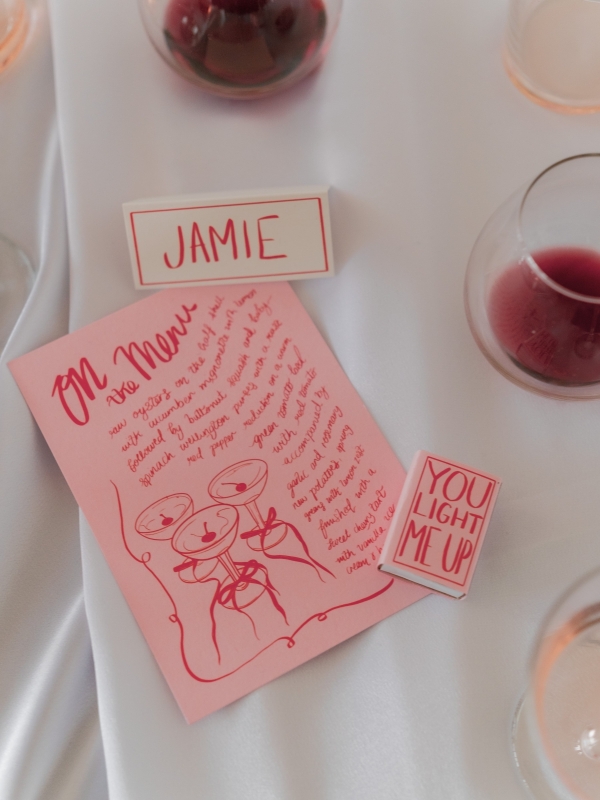 JAMIE
On the Menu
raw oysters on the half shell
with cucumber mignonette with lemon
followed by butternut squash and baby
spinach wellington parcels with a roast
red pepper reduction on a warm
green lentil bed
with red tomato
accompanied by
garlic and rosemary
new potatoes, spring
greens with lemon zest
finished with a
sweet cherry tart
with vanilla ice
cream
YOU
LIGHT
ME UP